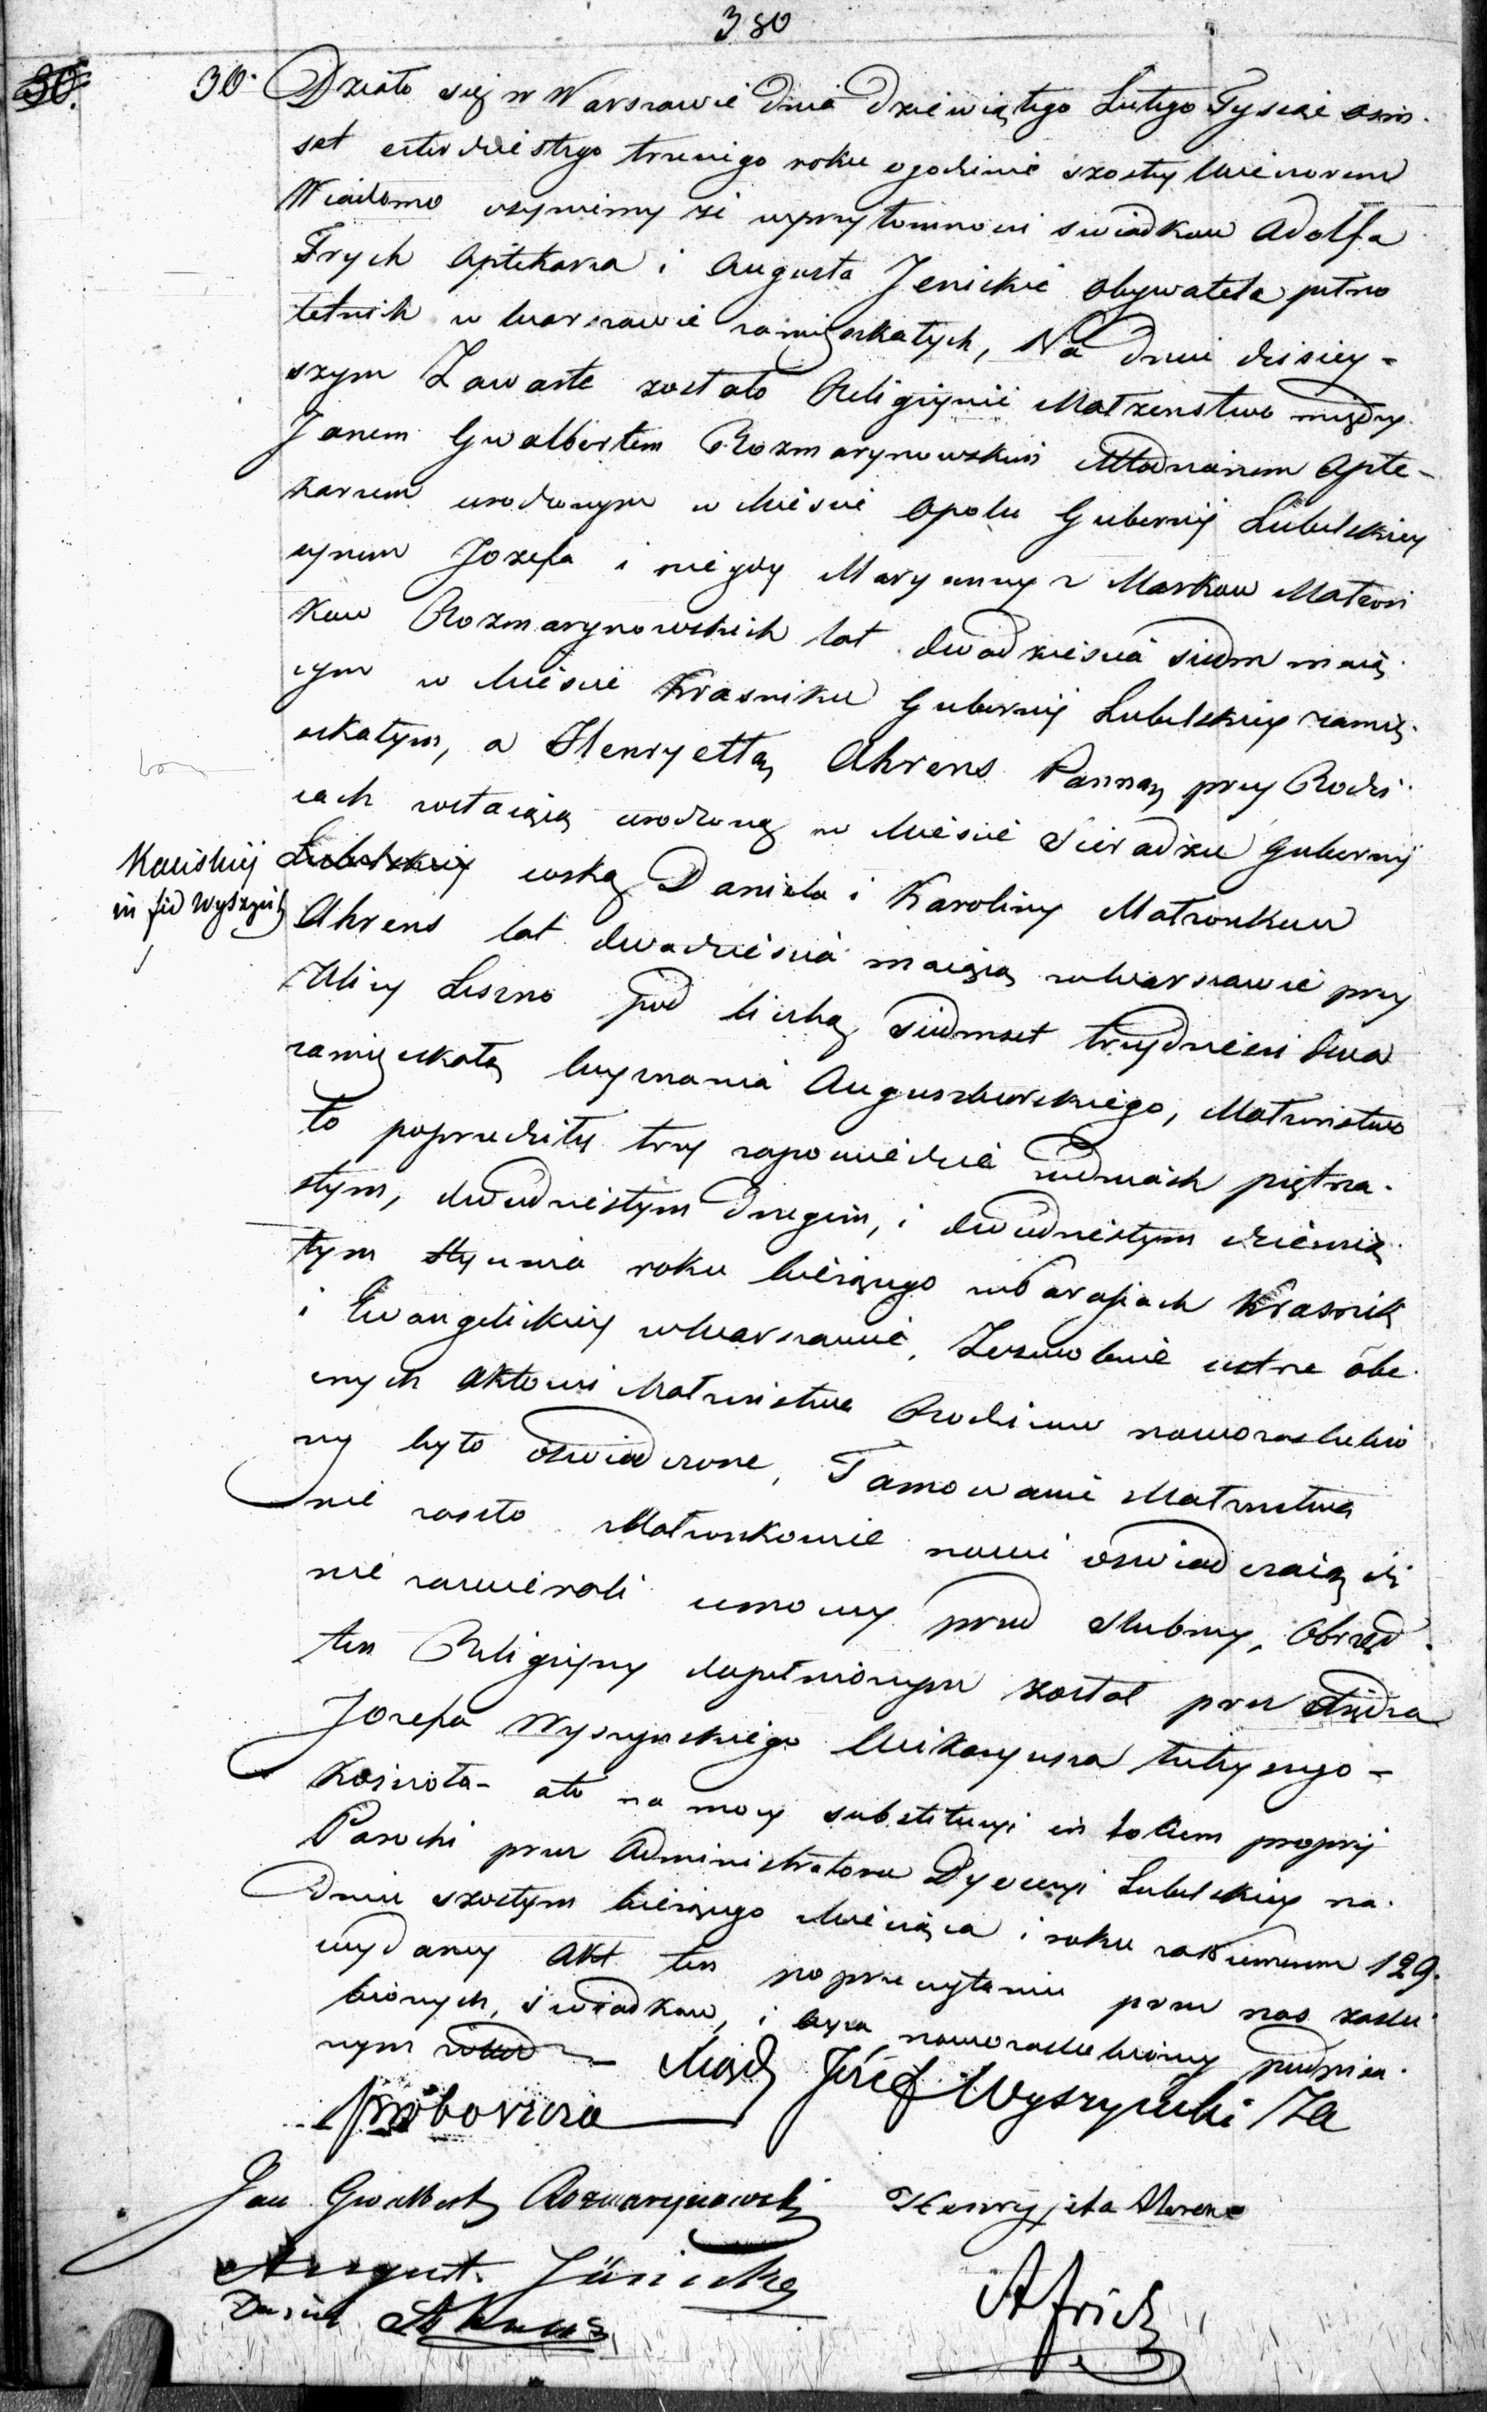 380
30.
30. Działo się w Warszawie dnia Dziewiątego Lutego Tysiąc osm-
set czterdziestego trzeciego roku o godzinie szostey wieczorem
Wiadomo czyniemy że w przytomnosci swiadkow Adolfa
Frych Aptekarza i Augusta Jenickie Obywatela pełno
letnich w Warszawie zamięszkałych, Na dniu dzisiey-
szym Zawarte zostało Religijnie Małżenstwo między
Janem Gwalbertem Rozmarynowskim Młodzianem Apte-
karzem urodzonym w Miescie Opolu Gubernij Lubelskiey
synem Jozefa i niegdy Maryanny z Markow Małzon
kow Rozmarynowskich lat dwadziescia siedm maią-
cym w Miescie Krasniku Gubernij Lubelskiey zamię-
szkałym, a Henryettą Ahrens Panną przy Rodzi-
cach zostaiącą urodzoną w Miescie Sieradzu Gubernij
Kaliskiej
Xjd Wyszyń
Lubelskiey corką Daniela i Karoliny Małzonkow
Ahrens lat dwadziescia maiącą w Warszawie przy
Ulicy Leszno pod liczbą Siedmset trzydziesci dwa
zamięszkałą Wyznania Auguszburskiego, Małzenstwo
to poprzedziły trzy zapowiedzie w dniach piętna-
stym, dwudziestym drugim, i dwudziestym dziewią-
tym Stycznia roku bieżącego w Parafiach Krasnik
i Ewangelickiey w Warszawie, Zezwolenie ustne obe-
cnych aktowi Małzenstwa Rodzicow nowozaslubio
ny było oswiadczone, Tamowanie Małzenstwa
nie zaszło Małzonkowie nowi oswiadczaią iż
nie zawierali umowy przed slubney, Obrzęd
ten Religijny dopełnionym został przez Xiędza
Jozefa Wyszynskiego Wikaryusza tuteyszego-
Koscioła- a to na mocy substitucyi in locum proprij
Parochi przez Administratora Dyecezyi Lubelskiey na
dniu szostym bieżącego Miesiąca i roku za Numerem 129.
wydaney Akt ten po przeczytaniu przez nas zaslu-
bionych, swiadkow, i oyca nowozaslubioney podpisa-
nym
Xiądz Józef Wyszyński Za
Proboszcza
Jan Gwalbert Rozmarynowski Henryjeta Ahrens
August Jänicke
A Frich
Daniel Ahrens